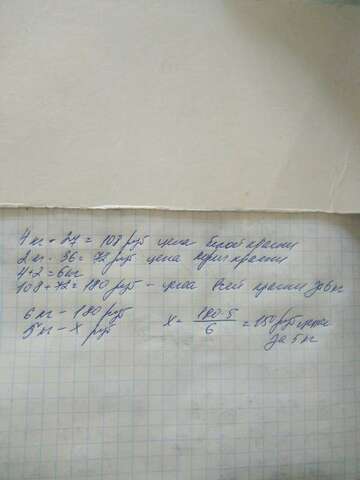 4 кг · 27 = 108 руб цена белой краски
2 кг · 36 = 72 руб цена корич краски
4+2=6кг
108+72=180 руб - цена всей краски за 6кг
6 кг - 180 руб
5 кг - х руб
х = 180·5 / 6 = 150 руб цена
за 5 кг